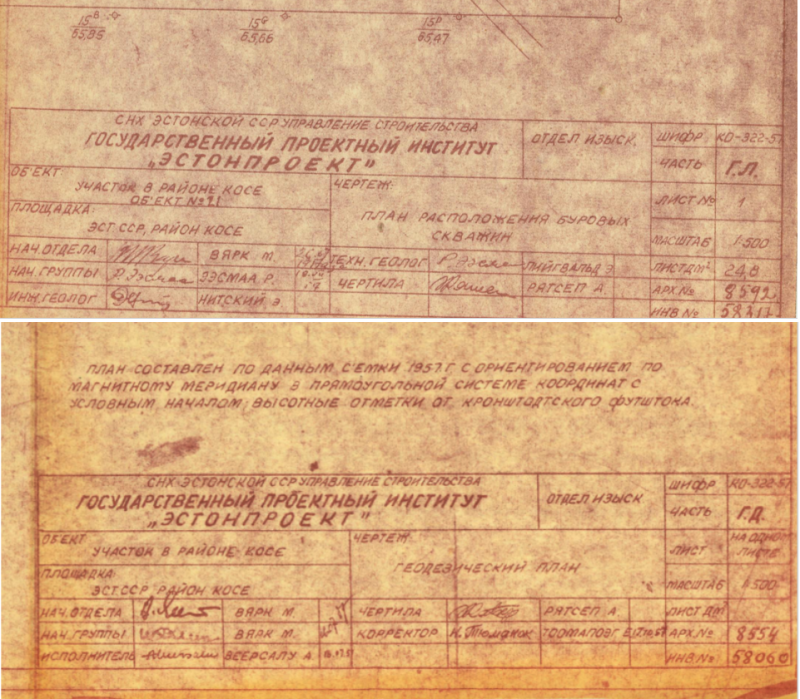 15В 15Q 15Р
65,85 65,66 65,47
СНХ ЭСТОНСКОЙ ССР УПРАВЛЕНИЕ СТРОИТЕЛЬСТВА
ГОСУДАРСТВЕННЫЙ ПРОЕКТНЫЙ ИНСТИТУТ
„ЭСТОНПРОЕКТ"
ОТДЕЛ ИЗЫСК.
ШИФР КО-322-57
ЧАСТЬ Г.Л.
ОБ'ЕКТ
УЧАСТОК В РАЙОНЕ КОСЕ
ОБ'ЕКТ №71
ЧЕРТЕЖ:
ПЛАН РАСПОЛОЖЕНИЯ БУРОВЫХ
СКВАЖИН
ЛИСТ № 1
ПЛОЩАДКА:
ЭСТ.ССР, РАЙОН КОСЕ
МАСШТАБ 1:500
НАЧ. ОТДЕЛА ВЯРК М. ТЕХН. ГЕОЛОГ ЛИЙГВАЛЬД Э. ЛИСТ ДМ² 24,8
НАЧ. ГРУППЫ ЭЭСМАА Р. ЧЕРТИЛА РЯТСЕП А. АРХ.№ 8592
ИНЖ. ГЕОЛОГ НИТСКИЙ Э. ИНВ №
ПЛАН СОСТАВЛЕН ПО ДАННЫМ С'ЕМКИ 1957 Г С ОРИЕНТИРОВАНИЕМ ПО
МАГНИТНОМУ МЕРИДИАНУ В ПРЯМОУГОЛЬНОЙ СИСТЕМЕ КООРДИНАТ С
УСЛОВНЫМ НАЧАЛОМ, ВЫСОТНЫЕ ОТМЕТКИ ОТ КРОНШТАДТСКОГО ФУТШТОКА.
СНХ ЭСТОНСКОЙ ССР УПРАВЛЕНИЕ СТРОИТЕЛЬСТВА
ГОСУДАРСТВЕННЫЙ ПРОЕКТНЫЙ ИНСТИТУТ
„ЭСТОНПРОЕКТ"
ОТДЕЛ ИЗЫСК
ШИФР КО-322-57
ЧАСТЬ Г.Д.
ОБ'ЕКТ
УЧАСТОК В РАЙОНЕ КОСЕ
ЧЕРТЕЖ:
ГЕОДЕЗИЧЕСКИЙ ПЛАН
ЛИСТ НА ОДНОМ
ЛИСТЕ
ПЛОЩАДКА:
ЭСТ.ССР РАЙОН КОСЕ
МАСШТАБ 1:500
НАЧ. ОТДЕЛА ВЯРК М. ЧЕРТИЛА РЯТСЕП А. ЛИСТ ДМ²
НАЧ. ГРУППЫ ВЯРК М. КОРРЕКТОР АРХ.№ 8554
ИСПОЛНИТЕЛЬ ВЕЕРСАЛУ А. ИНВ.№ 58060